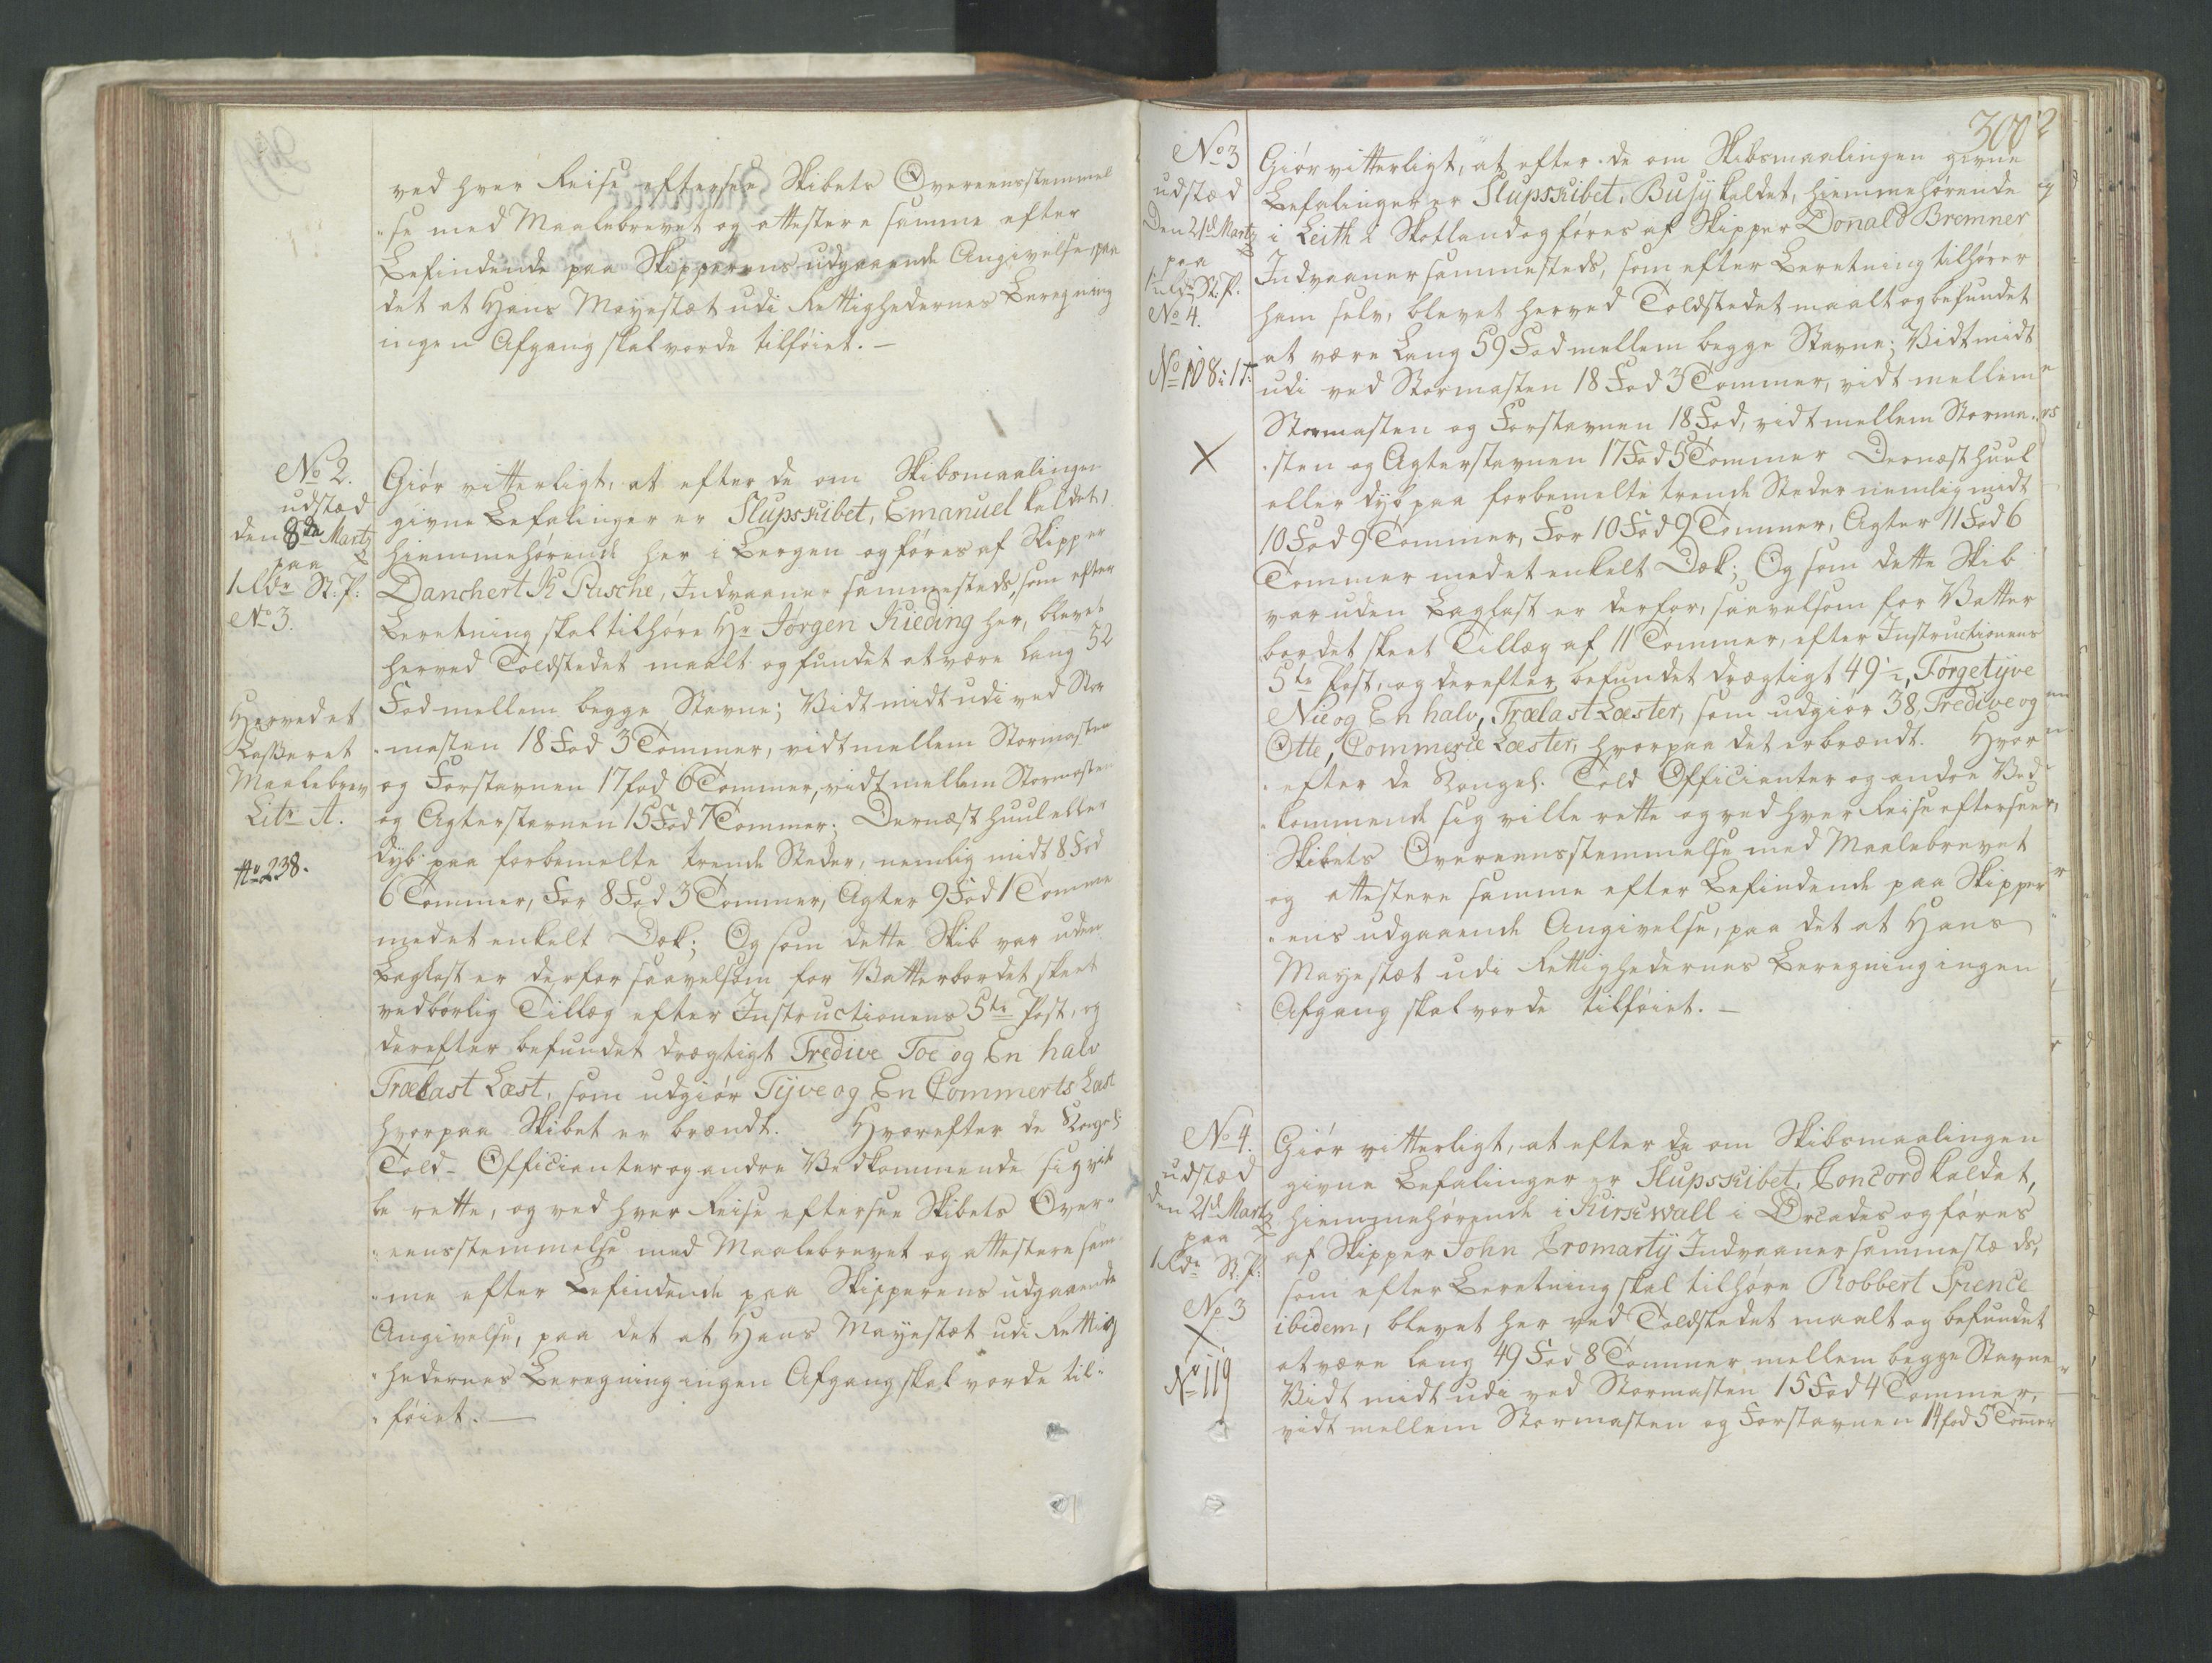 ved hver Reise eftersee Skibets Overeensstemmel
"se med Maalebrevet og attestere samme efter
Befindende paa Skipperens udgaaende Angivelse, paa
det at Hans Mayestæt udi Rettighedernes Beregning
ingen Afgang skal vorde tilföiet. —
No 2.
udstæd
den 8de Martz
paa
1 Rdr St: P:
No 3.
Herved et
Casseret
Maalebrev
Litr A.
No 238.
Giör vitterligt, at efter de om Skibsmaalingen
givne Befalinger er Slupskibet, Emanuel kaldet,
hiemmehörende her i Bergen og föres af Skipper
Danchert K Pusche, Indvaaner sammesteds, som efter
Beretning skal tilhöre Hr Jörgen Kieding her, blevet
herved Toldstedet maalt og fundet at være lang 52
Fod mellem begge Stavne; Vidt midt udi ved Stor
"masten 18 Fod 3 Tommer, vidt mellem Stormasten
og Forstavnen 17 fod 6 Tommer, vidt mellem Stormasten
og Agterstavnen 15 Fod 7 Tommer; Dernæst huul eller
dyb paa forbemelte trende Steder, nemlig midt 8 Fod
6 Tommer, For 8 Fod 3 Tommer, Agter 9 Fod 1 Tomme
med et enkelt Dæk; Og som dette Skib var uden
Baglast er derfor saavelsom for Vatterbordet skeet
vedbörlig Tillæg efter Instructionens 5te Post, og
derefter befundet drægtigt Tredive Toe og En halv
Trælast Læst, som udgiör Tyve og En Commerts Læst
hvorpaa Skibet er brændt. Hvorefter de Kongel:
Told-Officianter og andre Vedkommende sig vil
le rette, og ved hver Reise eftersee Skibets Over-
"eensstemmelse med Maalebrevet og attestere sam-
"me efter Befindende paa Skipperens udgaaende
Angivelse, paa det at Hans Mayestæt udi Rettig
"hedernes Beregning ingen Afgang skal vorde til-
"föiet. —
300
No 3
udstæd
Den 21de Martz
paa
1 Rdr St: P.
No 4.
No 108: 1 T:
X
Giör vitterligt, at efter de om Skibsmaalingen givne
Befalinger er Slupskibet, Busÿ kaldet, hiemmehörende
i Leith i Skotland og föres af Skipper Donald Bremner
Indvaaner sammesteds, som efter Beretning tilhörer
ham selv, blevet herved Toldstedet maalt og befundet
at være Lang 59 Fod mellem begge Stavne; Vidt midt
udi ved Stormasten 18 Fod 3 Tommer, vidt mellem
Stormasten og Forstavnen 18 Fod, vidt mellem Storma-
"sten og Agterstavnen 17 Fod 5 Tommer Dernæst huul
eller dyb paa forbemelte trende Steder nemlig midt
10 Fod 9 Tommer, For 10 Fod 9 Tommer, Agter 11 Fod 6
Tommer med et enkelt Dæk; Og som dette Skib
var uden Baglast er derfor, saavelsom for Vatter
bordet skeet Tillæg af 11 Tommer, efter Instructionens
5te Post, og derefter befundet drægtigt 49 1/2, Förgetyve
Nie og En halv, Trælast Læster, som udgiör 38, Tredive og
Otte, Commerce Læster, hvorpaa det er brændt. Hvor
"efter de Kongel. Told Officianter og andre Ved-
"kommende sig ville rette og ved hver Reise eftersee
Skibets Overeensstemmelse med Maalebrevet
og attestere samme efter Befindende paa Skipper
"ens udgaaende Angivelse, paa det at Hans
Mayestæt udi Rettighedernes Beregning ingen
Afgang skal vorde tilföiet. —
No 4.
udstæd
den 21de Martz
paa
1 Rdr St. P:
No 3
X
No 119
Giör vitterligt, at efter de om Skibsmaalingen
givne Befalinger er Slupskibet, Concord kaldet,
hiemmehörende i Kirsewall i Orcades og föres
af Skipper John Cromartÿ Indvaaner sammestæds,
som efter Beretning skal tilhöre Robbert Spence
ibidem, blevet her ved Toldstedet maalt og befundet
at være lang 49 Fod 8 Tommer mellem begge Stavne
Vidt midt udi ved Stormasten 15 Fod 4 Tommer,
vidt mellem Stormasten og Forstavnen 14 fod 5 Tommer